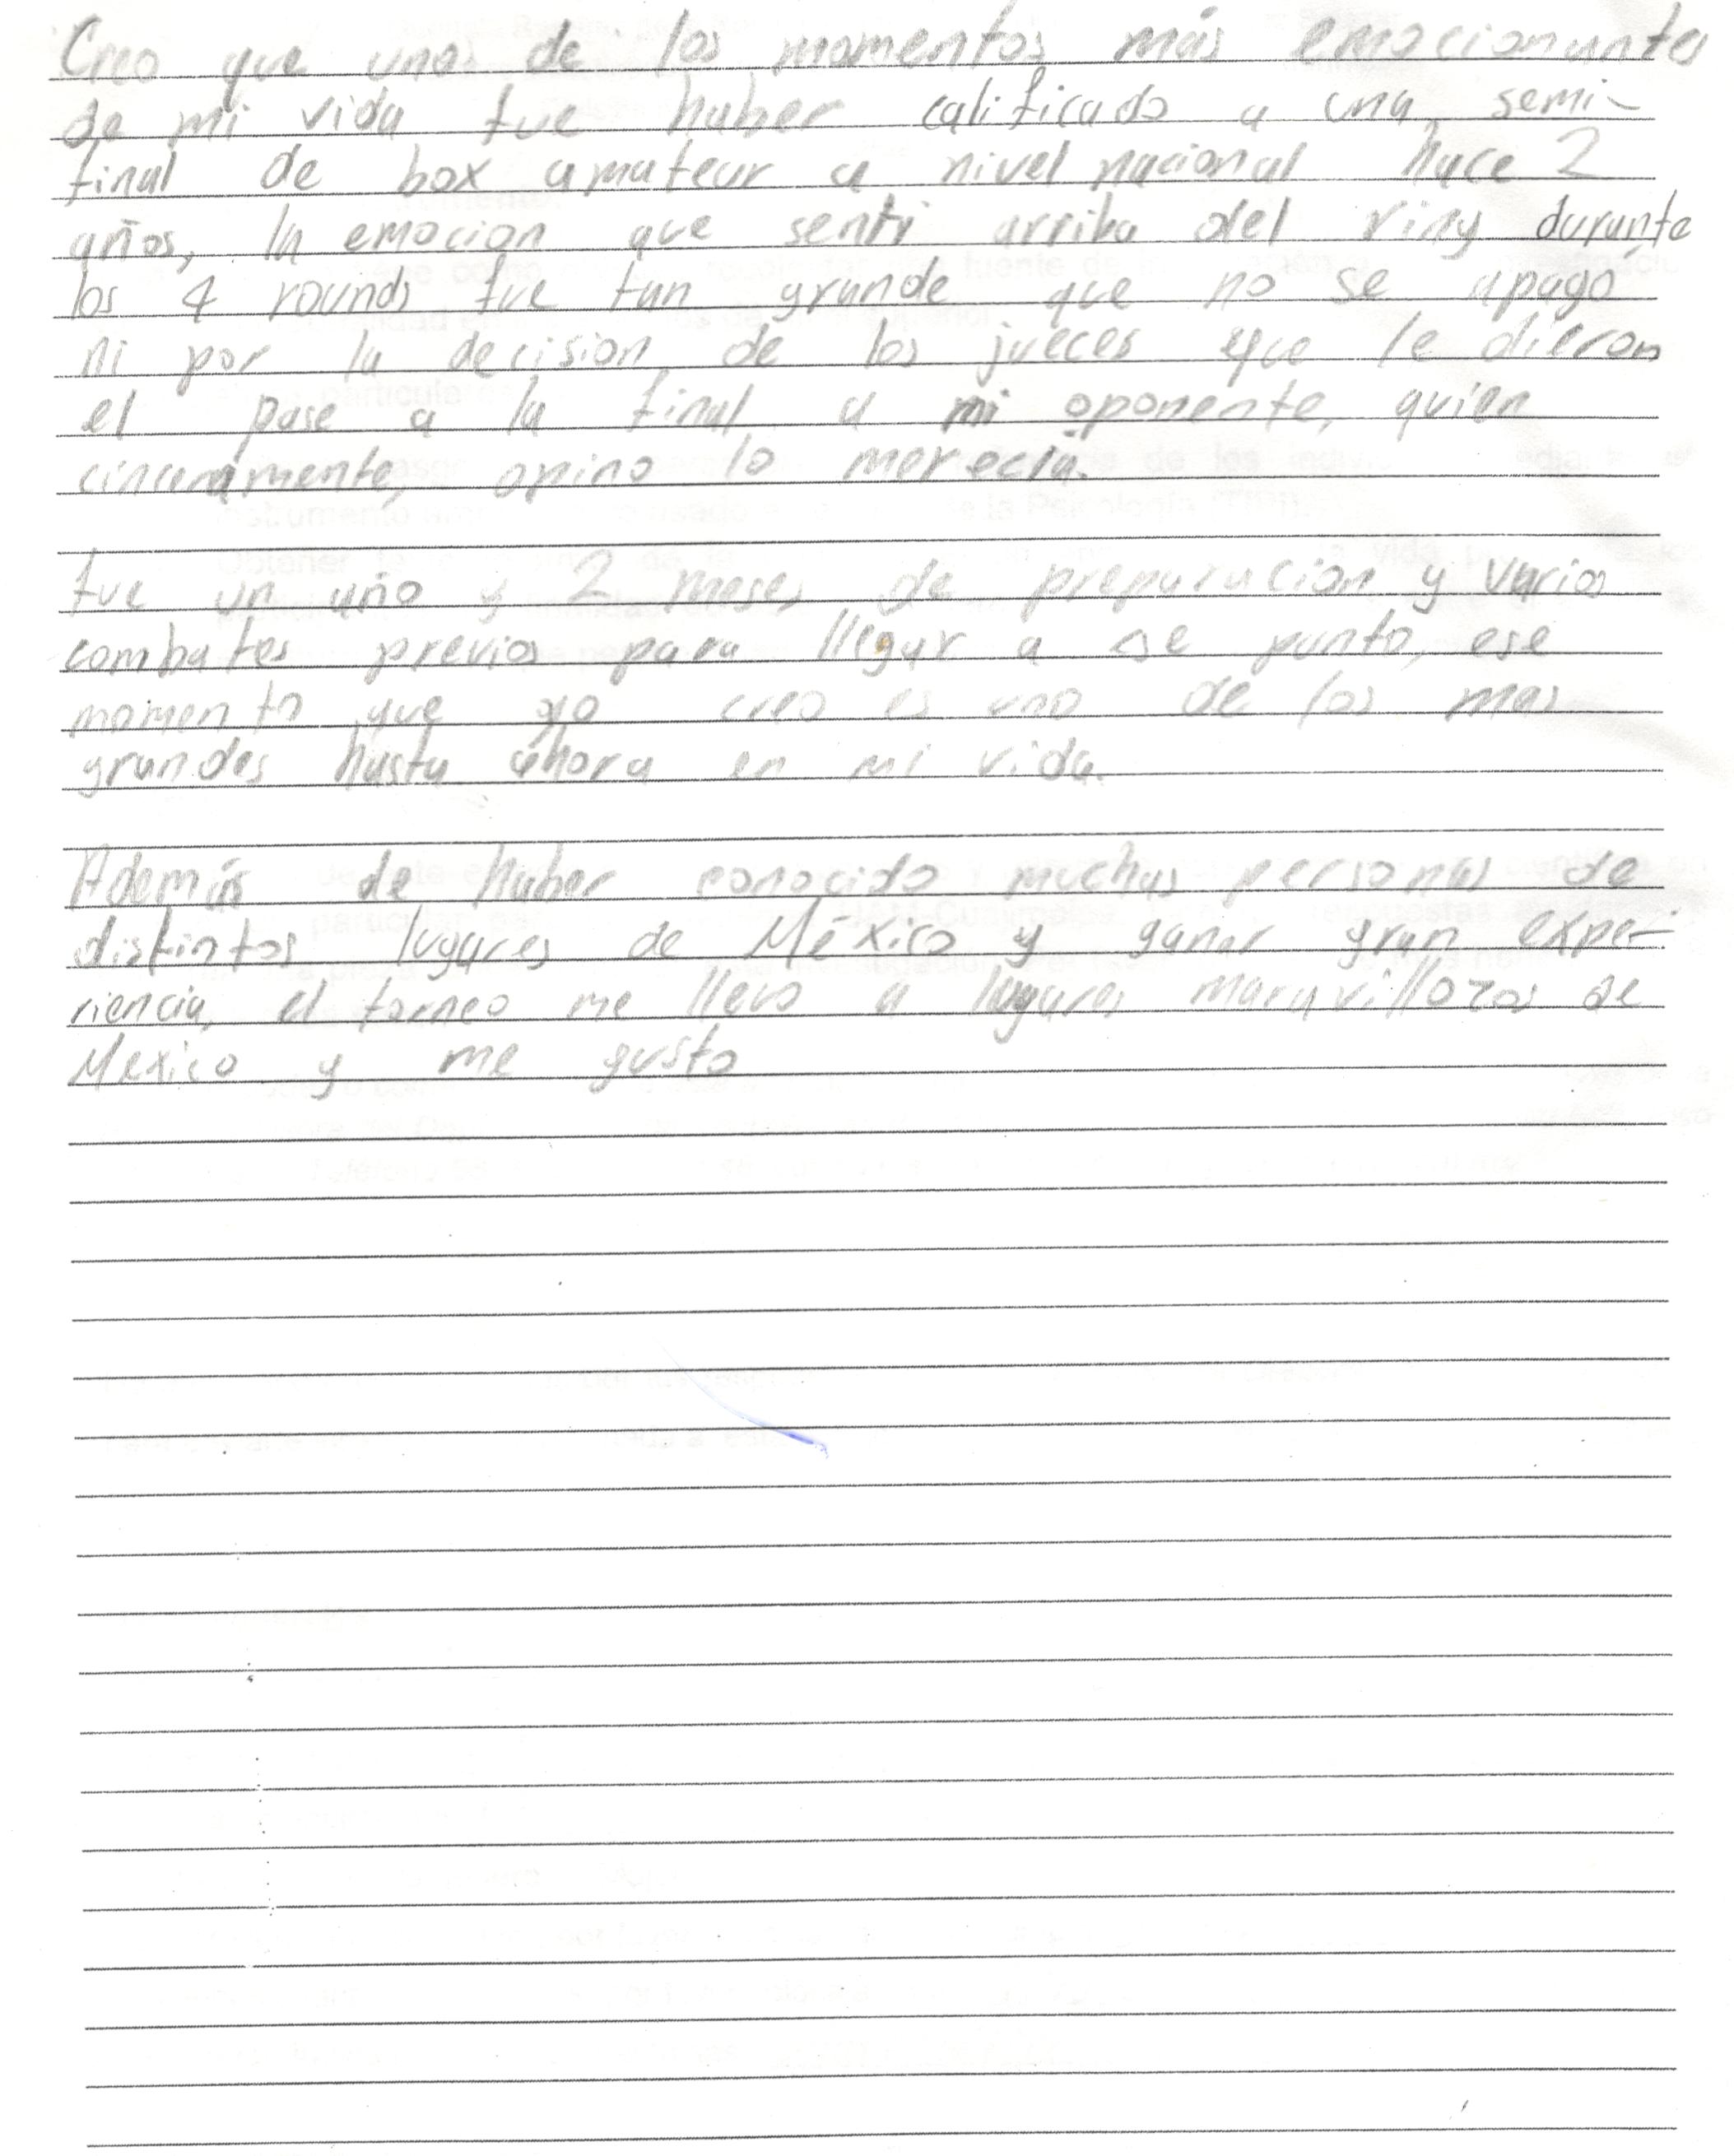 Creo que uno de los momentos más emocionantes
de mi vida fue haber calificado a una semi-
final de box amateur a nivel nacional hace 2
años, la emocion que sentí arriba del ring durante
los 4 rounds fue tan grande que no se apagó
ni por la decision de los jueces que le dieron
el pase a la final a mi oponente, quien
cinceramente, opino lo merecía.
fue un año y 2 meses de preparacion y varios
combates previos para llegar a ese punto, ese
momento que yo creo es uno de los mas
grandes hasta ahora en mi vida.
Además de haber conocido muchas personas de
distintos lugares de México y ganar gran expe-
riencia, el torneo me llevo a lugares maravillozos de
Mexico y me gusto